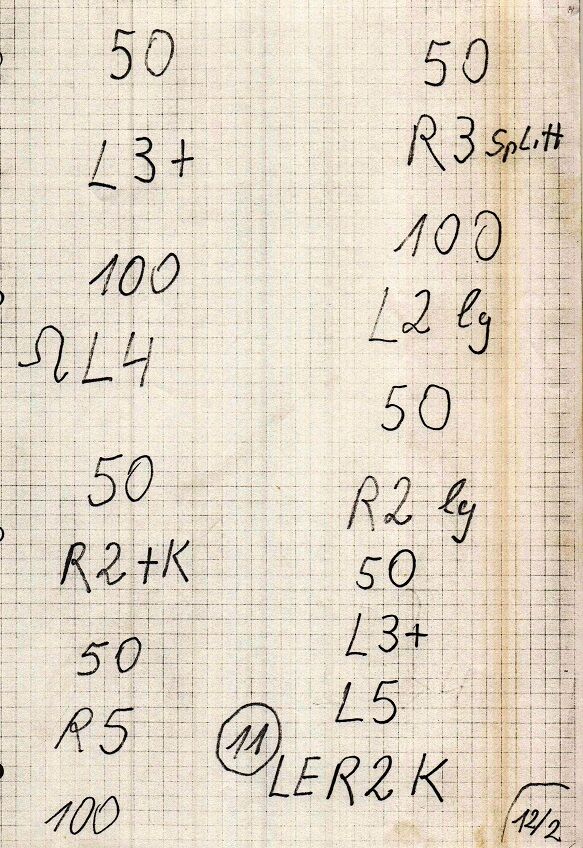 50
L3+
100
Ω L4
50
R2+K
50
R5
100
50
R3 SpLitt
100
L2 lg
50
R2 lg
50
L3+
L5
11
LER2K
12/2